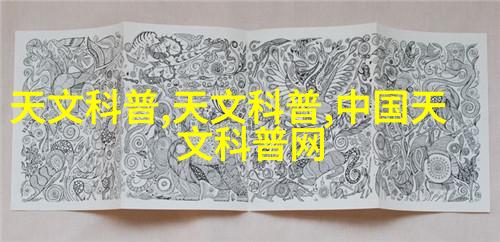 天文科普,天文科普,中国天
文科普网